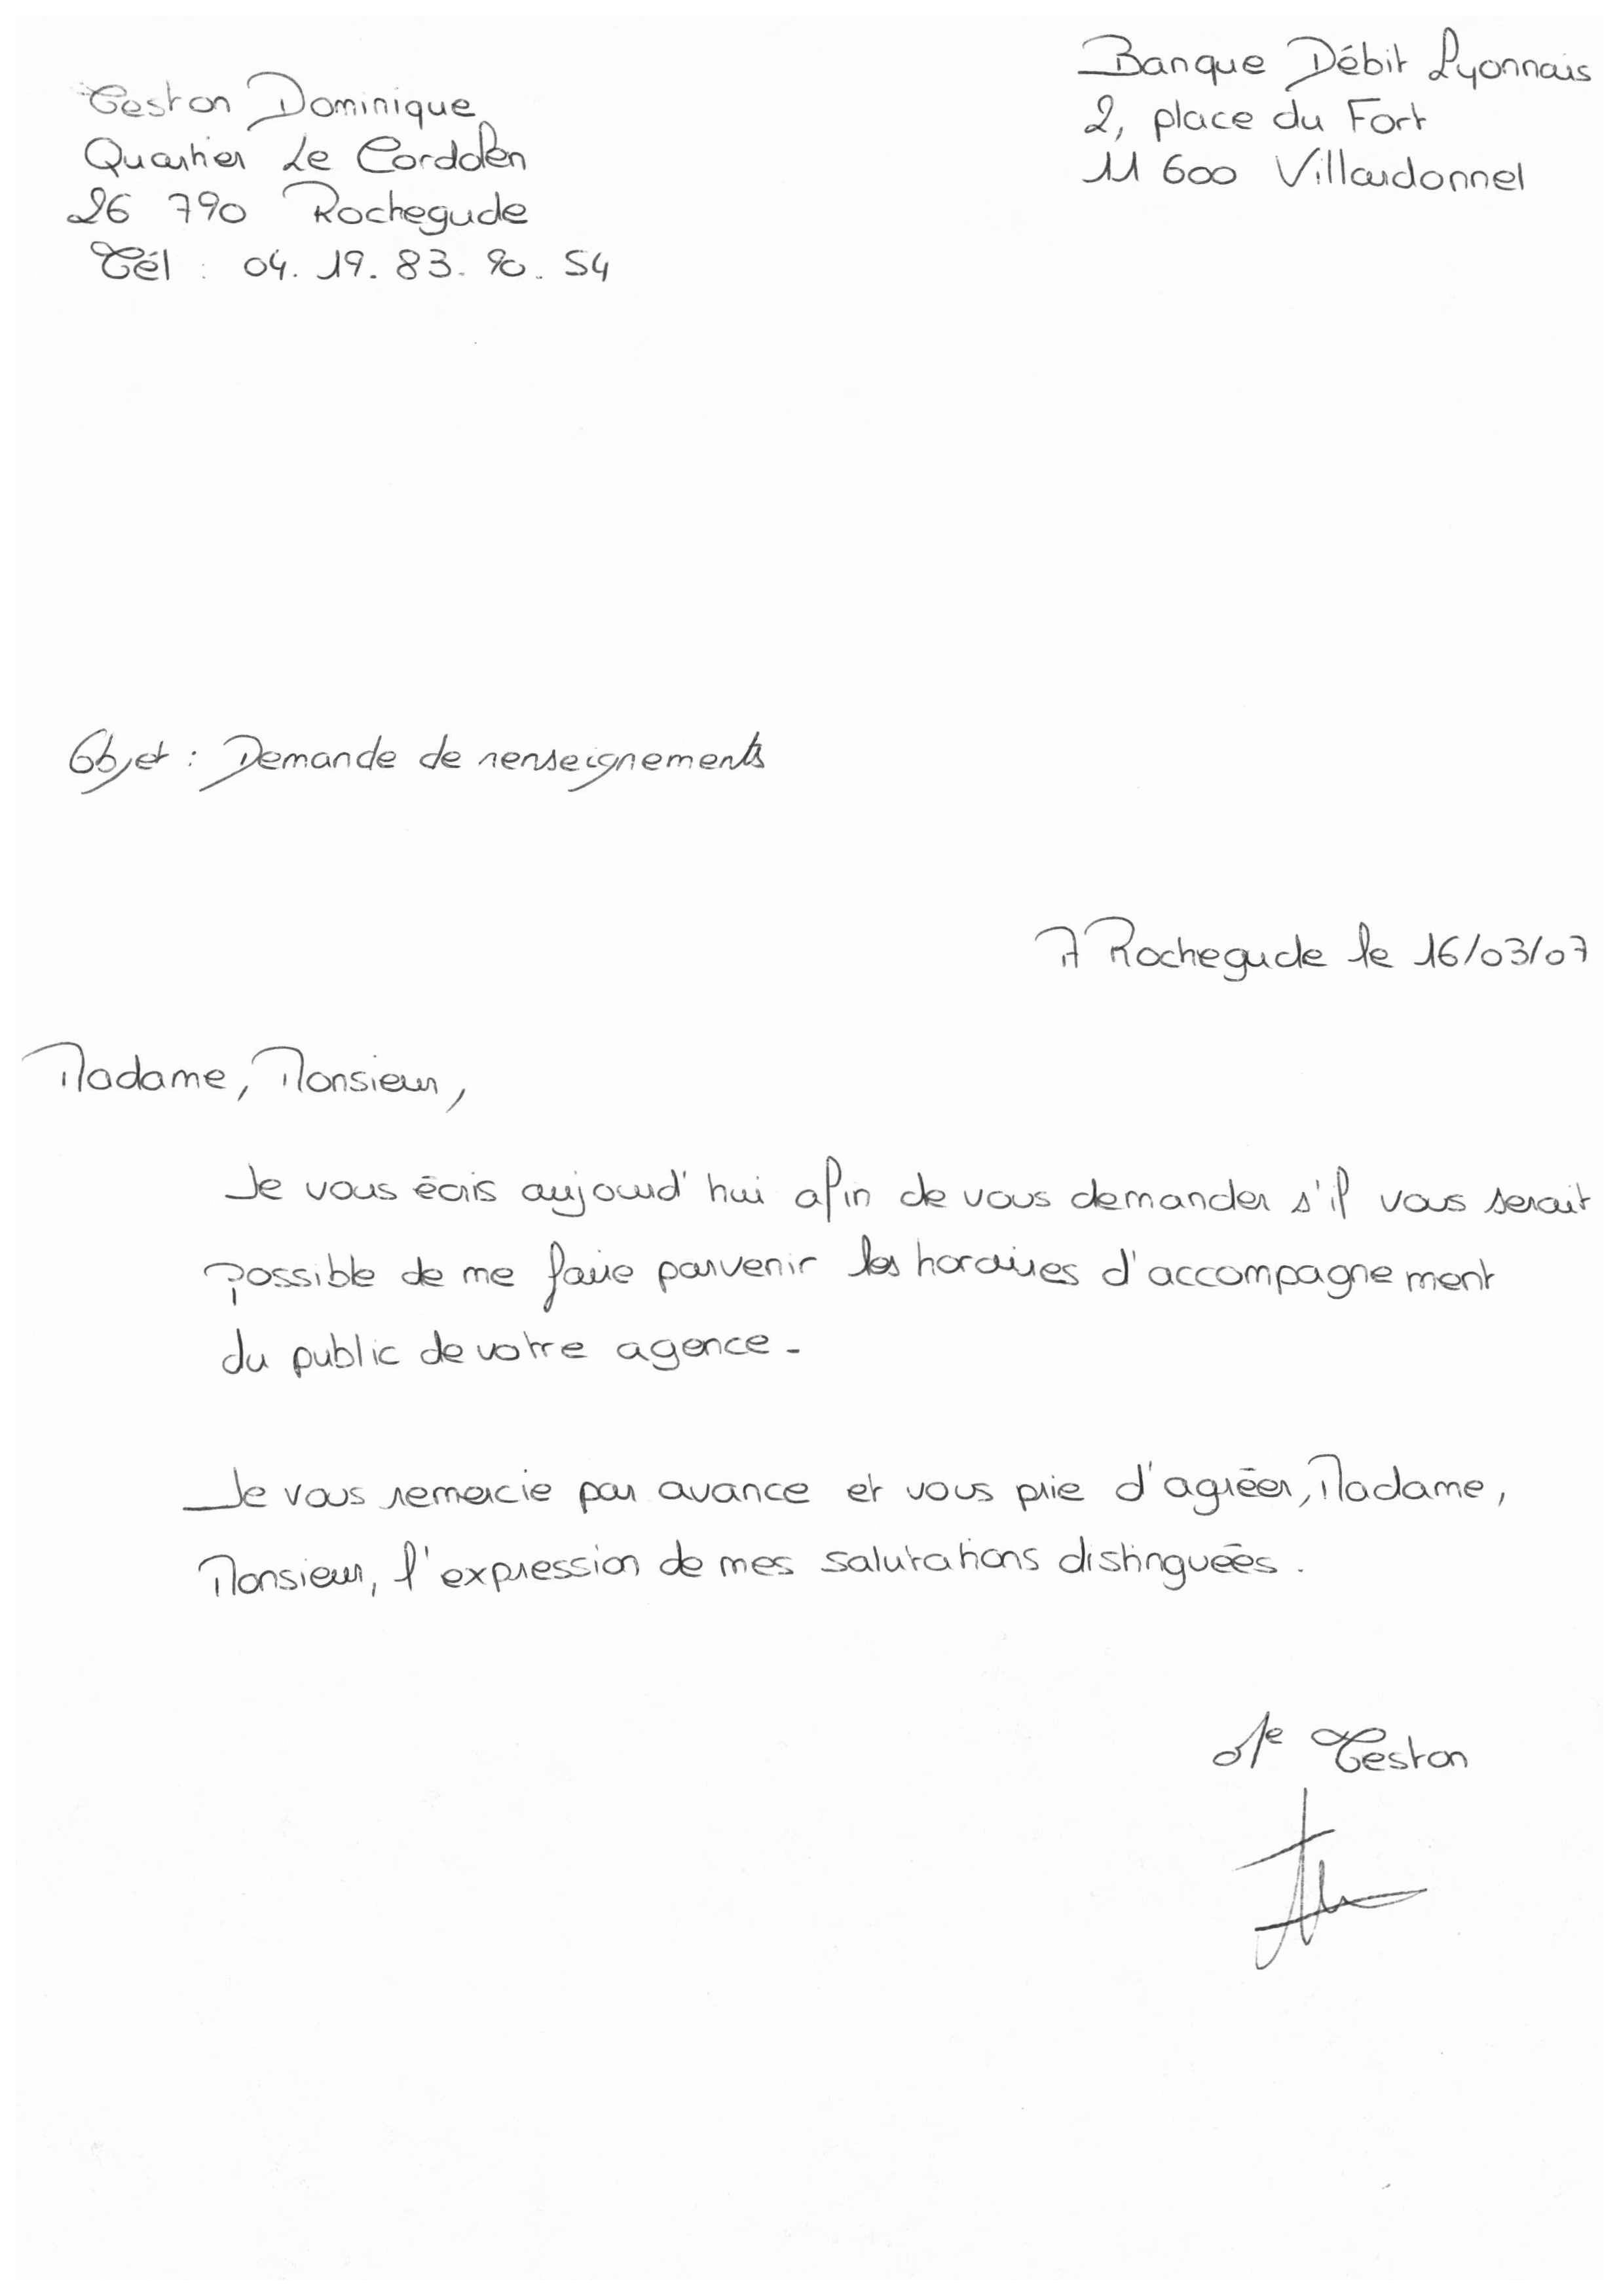 Teston Dominique
Quartier Le Cordolen
26 790 Rochegude
Tél : 04.19.83.90.54
Banque Débit Lyonnais
2, place du Fort
11 600 Villardonnel
Objet : Demande de renseignements
A Rochegude le 16/03/07
Madame, Monsieur,
Je vous écris aujourd'hui afin de vous demander s'il vous serait
possible de me faire parvenir les horaires d'accompagnement
du public de votre agence.
Je vous remercie par avance et vous prie d'agréer, Madame,
Monsieur, l'expression de mes salutations distinguées.
Teston